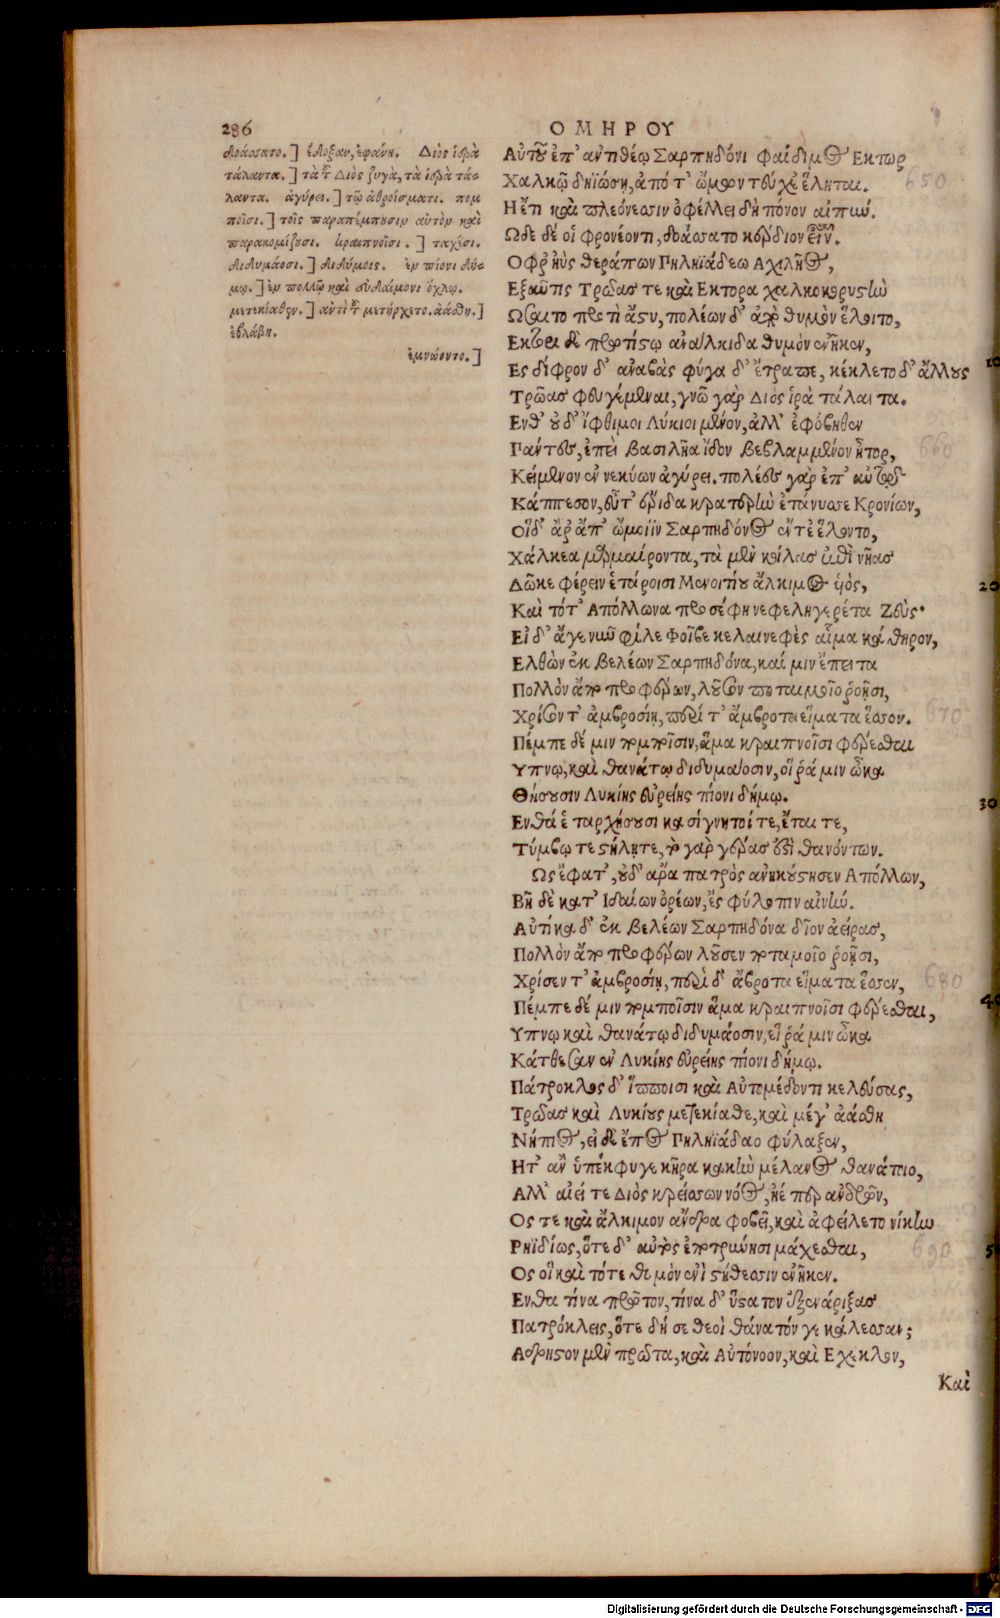 286
ΟΜΗΡΟΥ
δοάσσατο.] ἔδοξαν, ἐφάνη. Διὸς ἱερὰ
τάλαντα.] τὰ τοῦ Διὸς ζυγὰ, τὰ ἱερὰ τά-
λαντα. ἀγύρει.] τῷ ἀθροίσματι. πομ
ποῖσι.] τοῖς παραπέμπουσιν αὐτὸν καὶ
παρακομίζουσι. κραιπνοῖσι.] ταχέσι.
διδυμάοσι.] διδύμοις. ἐν πίονι δή-
μῳ.] ἐν πολλῷ καὶ εὐδαίμονι ὄχλῳ.
μετεκίαθον.] ἀντὶ τοῦ μετήρχετο. ἀάσθη.]
ἐβλάβη.
ἐμνώοντο.]
Αὐτοῦ ἐπ' ἀντιθέῳ Σαρπηδόνι φαίδιμος Εκτωρ
Χαλκῷ δηϊώσῃ, ἀπό τ' ὤμων τεύχε' ἕληται.
650
Η ἔτι καὶ πλεόνεσσιν ὀφέλλει δὴ πόνον αἰπιώ.
Ωδε δέ οἱ φρονέοντι, δοάσσατο κέρδιον εἶναι.
Οφρ' ἠὺς θεράπων Πηληϊάδεω Αχιλῆος,
Εξαῦτις Τρῶας τε καὶ Εκτορα χαλκοκορυστὴν
Ωσαιτο προτὶ ἄστυ, πολέων δ' ἀπὸ θυμὸν ἕλοιτο,
Εκτορι δὲ πρωτίστῳ ἀνάλκιδα θυμὸν ἐνῆκεν,
Ες δίφρον δ' ἀναβὰς φύγα δ' ἔτραπε, κέκλετο δ' ἄλλους
10
Τρῶας φευγέμεναι, γνῶ γὰρ Διὸς ἱρὰ τάλαντα.
Ενθ' οὐδ' ἴφθιμοι Λύκιοι μένον, ἀλλ' ἐφόβηθεν
Πάντες, ἐπεὶ βασιλῆα ἴδον βεβλαμμένον ἦτορ,
660
Κείμενον ἐν νεκύων ἀγύρει. πολέες γὰρ ἐπ' αὐτῷ
Κάππεσον, εὖτ' ἔριδα κρατερὴν ἐτάνυσε Κρονίων,
Οἵδ' ἄρ' ἀπ' ὤμοιϊν Σαρπηδόνος ἔντε' ἕλοντο,
Χάλκεα μαρμαίροντα, τὰ μὲν κοίλας ἐπὶ νῆας
Δῶκε φέρειν ἑτάροισι Μενοιτίου ἄλκιμος υἱός,
20
Καὶ τότ' Απόλλωνα προσέφη νεφεληγερέτα Ζεύς·
Εἰ δ' ἄγε νῦν φίλε Φοῖβε κελαινεφὲς αἷμα κάθηρον,
Ελθὼν ἐκ βελέων Σαρπηδόνα, καί μιν ἔπειτα
Πολλὸν ἄπο προφέρων, λοῦσον ποταμοῖο ῥοῇσι,
Χρῖσόν τ' ἀμβροσίῃ, περί τ' ἄμβροτα εἵματα ἕσσον.
670
Πέμπε δέ μιν πομποῖσιν, ἅμα κραιπνοῖσι φέρεσθαι
Υπνῳ, καὶ θανάτῳ διδυμάοσιν, οἵ ῥά μιν ὦκα
Θήσουσιν Λυκίης εὐρείης πίονι δήμῳ.
30
Ενθά ἑ ταρχήσουσι κασίγνητοί τε, ἔται τε,
Τύμβῳ τε στήλῃ τε, τὸ γὰρ γέρας ἐστὶ θανόντων.
Ως ἔφατ', οὐδ' ἄρα πατρὸς ἀνηκούστησεν Απόλλων,
Βῆ δὲ κατ' Ιδαίων ὀρέων, ἐς φύλοπιν αἰνήν.
Αὐτίκα δ' ἐκ βελέων Σαρπηδόνα δῖον ἀείρας,
Πολλὸν ἄπο προφέρων λοῦσεν ποταμοῖο ῥοῇσι,
Χρῖσέν τ' ἀμβροσίῃ, περὶ δ' ἄβροτα εἵματα ἕσσεν,
680
Πέμπε δέ μιν πομποῖσιν ἅμα κραιπνοῖσι φέρεσθαι,
40
Υπνῳ καὶ θανάτῳ διδυμάοσιν, οἵ ῥά μιν ὦκα
Κάτθεσαν ἐν Λυκίης εὐρείης πίονι δήμῳ.
Πάτροκλος δ' ἵπποισι καὶ Αὐτομέδοντι κελεύσας,
Τρῶας καὶ Λυκίους μετεκίαθε, καὶ μέγ' ἀάσθη
Νήπιος, εἰ δὲ ἔπος Πηληϊάδαο φύλαξεν,
Ητ' ἂν ὑπέκφυγε κῆρα κακὴν μέλανος θανάτοιο,
Αλλ' αἰεί τε Διὸς κρείσσων νόος, ἠέ περ ἀνδρῶν,
Ος τε καὶ ἄλκιμον ἄνδρα φοβεῖ, καὶ ἀφείλετο νίκην
Ρηϊδίως, ὅτε δ' αὐτὸς ἐποτρύνησι μάχεσθαι,
690
50
Ος οἱ καὶ τότε θυμὸν ἐνὶ στήθεσσιν ἐνῆκεν.
Ενθα τίνα πρῶτον, τίνα δ' ὕστατον ἐξενάριξας
Πατρόκλεις, ὅτε δή σε θεοὶ θάνατόν γε κάλεσσαν;
Αδρηστον μὲν πρῶτα, καὶ Αὐτόνοον, καὶ Εχεκλον,
Καὶ
Digitalisierung gefördert durch die Deutsche Forschungsgemeinschaft - DFG